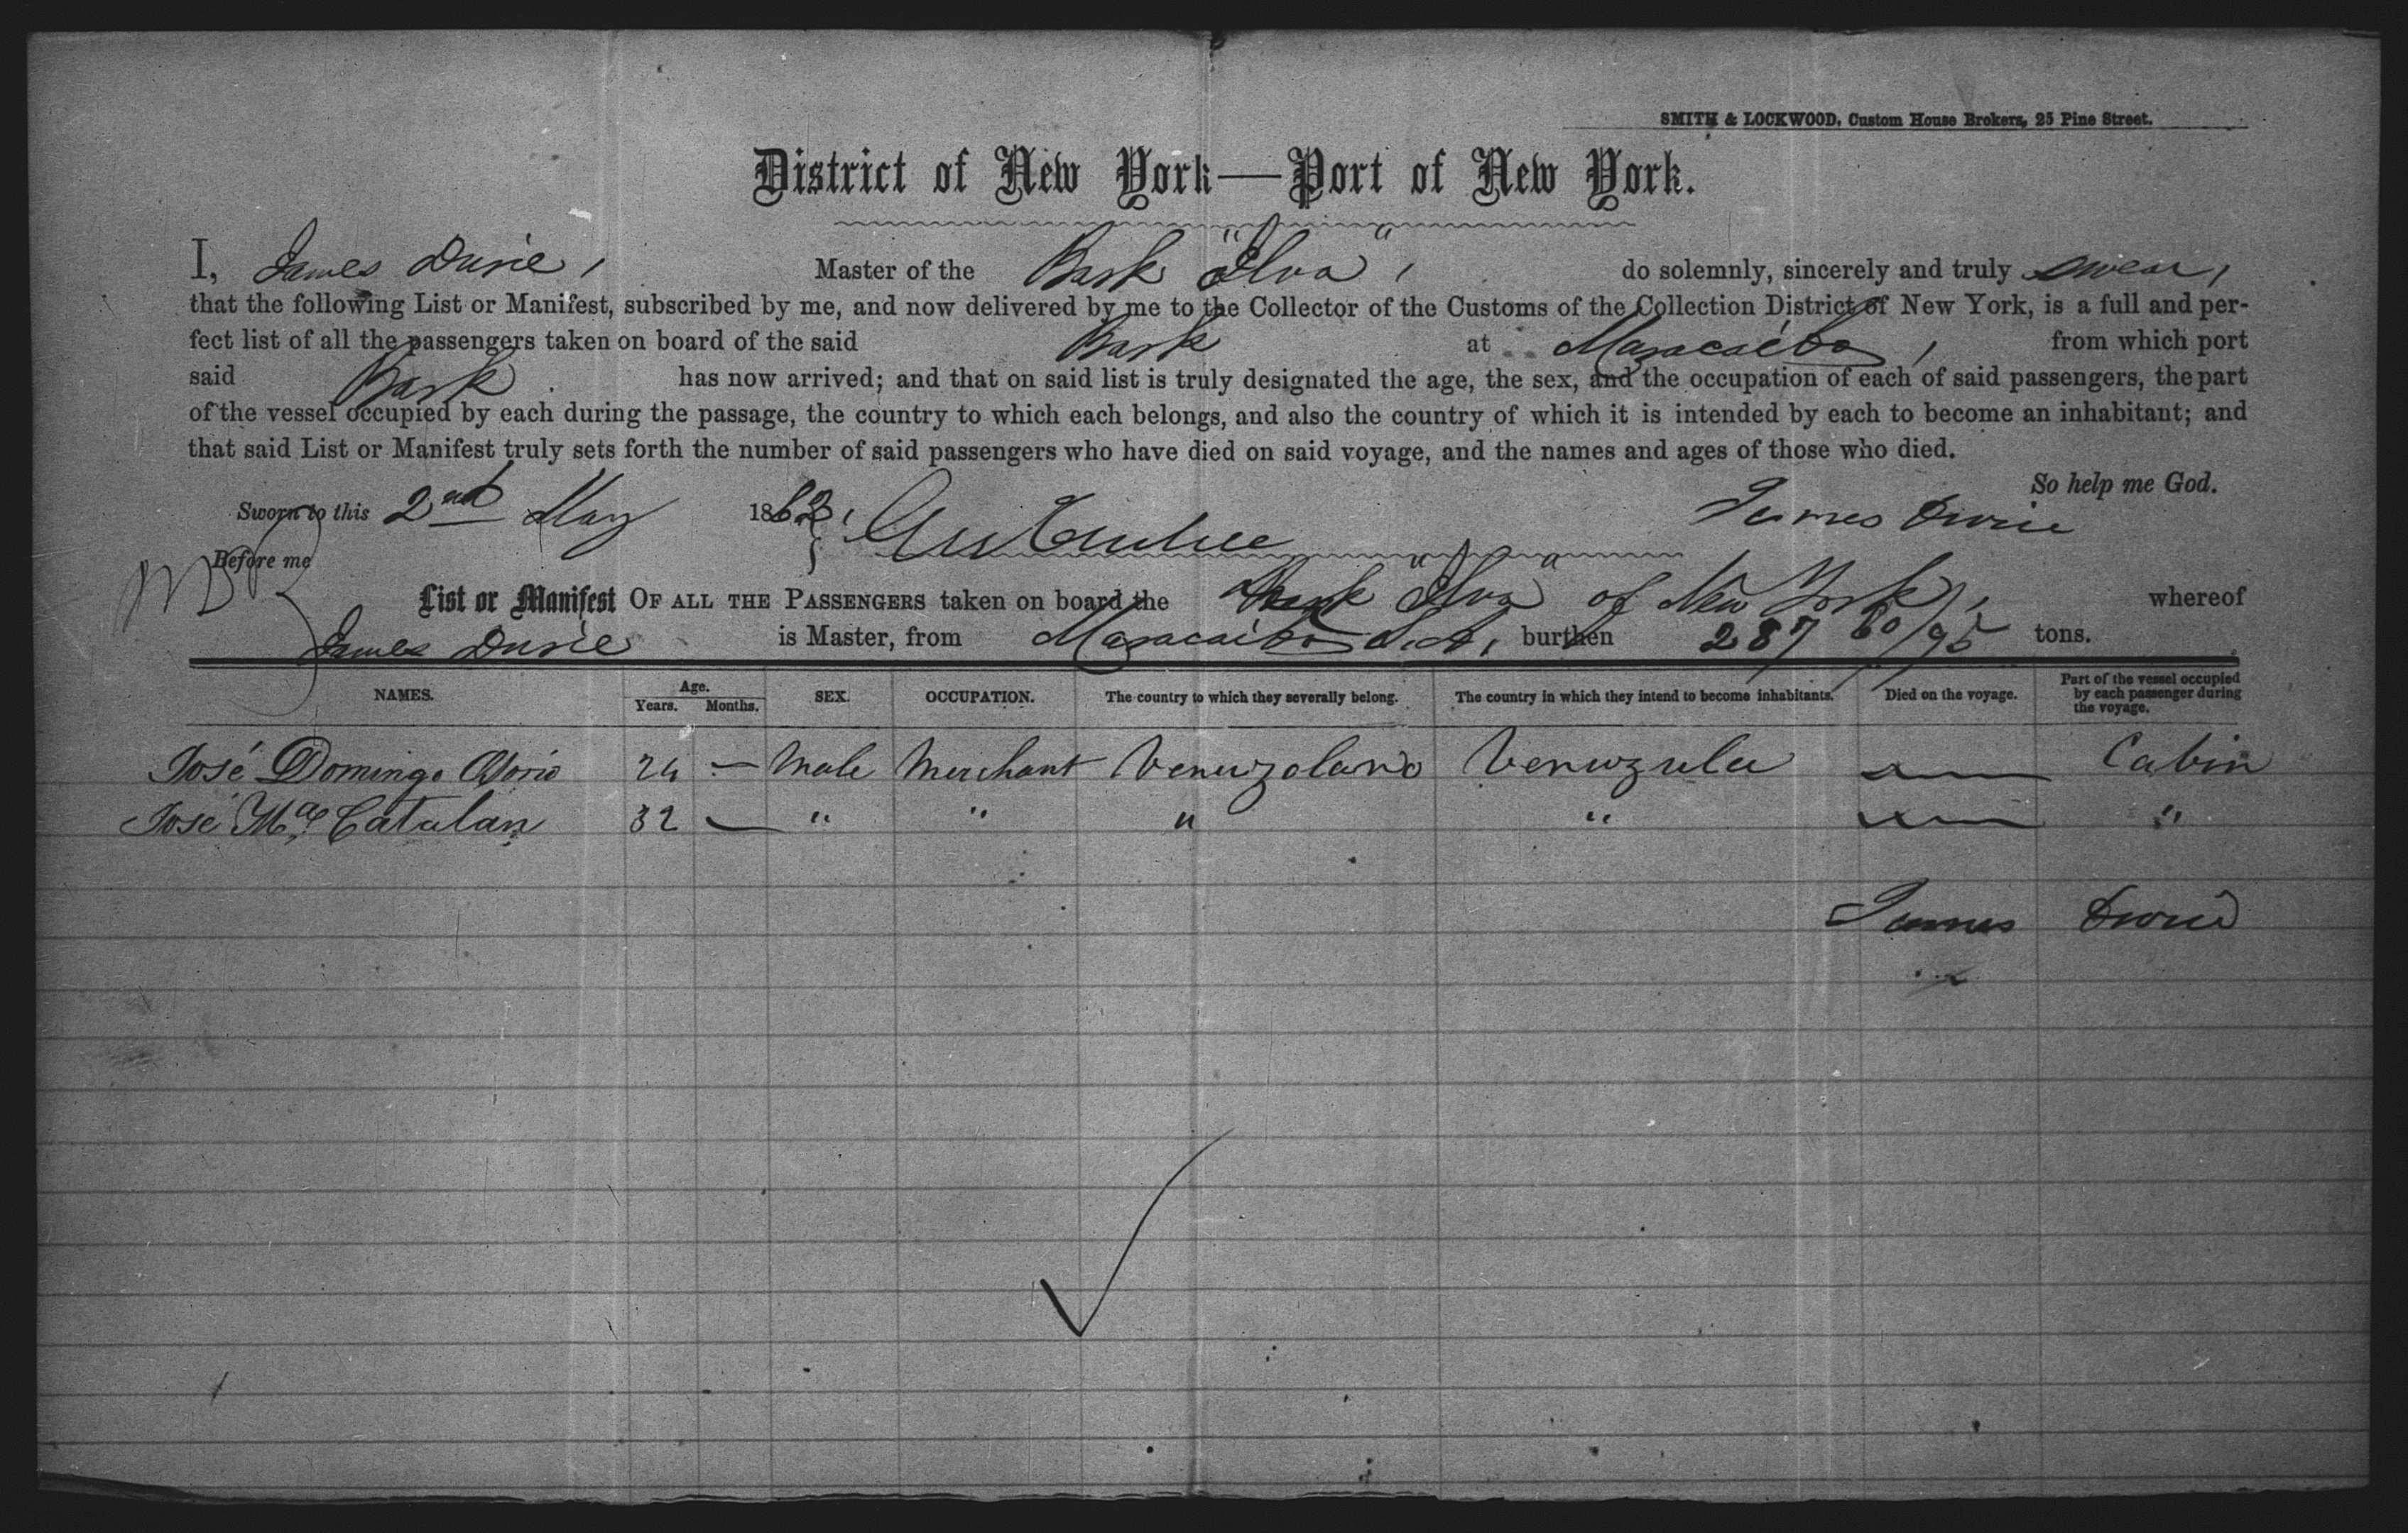 SMITH & LOCKWOOD, Custom House Brokers, 25 Pine Street.
District of New York—Port of New York.
I, James Durie, Master of the Bark "Ilva", do solemnly, sincerely and truly swear,
that the following List or Manifest, subscribed by me, and now delivered by me to the Collector of the Customs of the Collection District of New York, is a full and per-
fect list of all the passengers taken on board of the said Bark at Maracaibo, from which port
said Bark has now arrived; and that on said list is truly designated the age, the sex, and the occupation of each of said passengers, the part
of the vessel occupied by each during the passage, the country to which each belongs, and also the country of which it is intended by each to become an inhabitant; and
that said List or Manifest truly sets forth the number of said passengers who have died on said voyage, and the names and ages of those who died.
So help me God.
Sworn to this 2nd May 1863, James Durie
Before me
List or Manifest OF ALL THE PASSENGERS taken on board the Bark "Ilva" of New York, whereof
James Durie is Master, from Maracaibo S.A., burthen 287 60/95 tons.
NAMES. Age. Years. Months. SEX. OCCUPATION. The country to which they severally belong. The country in which they intend to become inhabitants. Died on the voyage. Part of the vessel occupied by each passenger during the voyage.
José Domingo Osorio 24 — Male Merchant Venuzolano Venuzula — Cabin
José Ma Catalan 32 — " " " " — "
James Durie